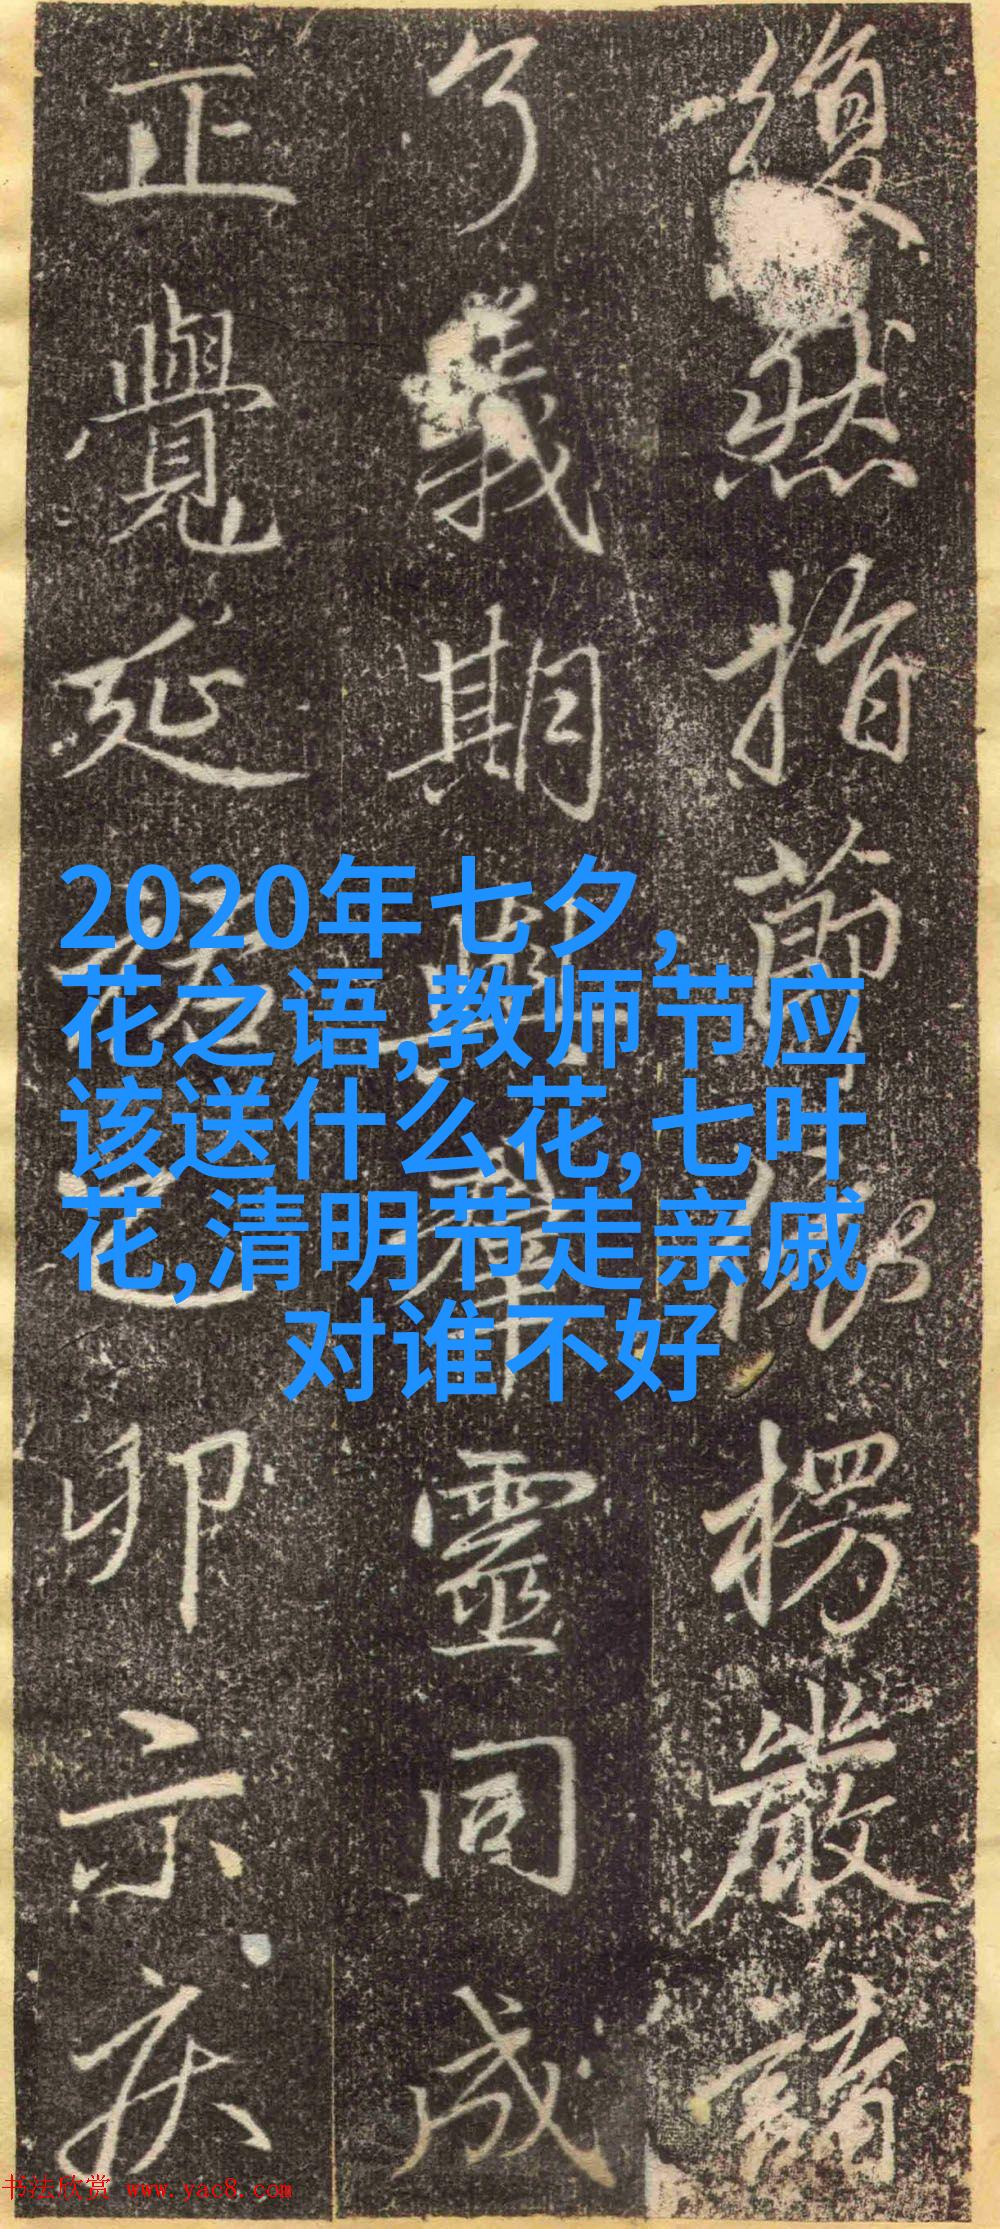 復然指前楞嚴
了義期與群靈同成
正覺延祐己卯示疾
2020年七夕，
花之语,教师节应
该送什么花,七叶
花,清明节走亲戚
对谁不好
书法欣赏 www.yac8.com